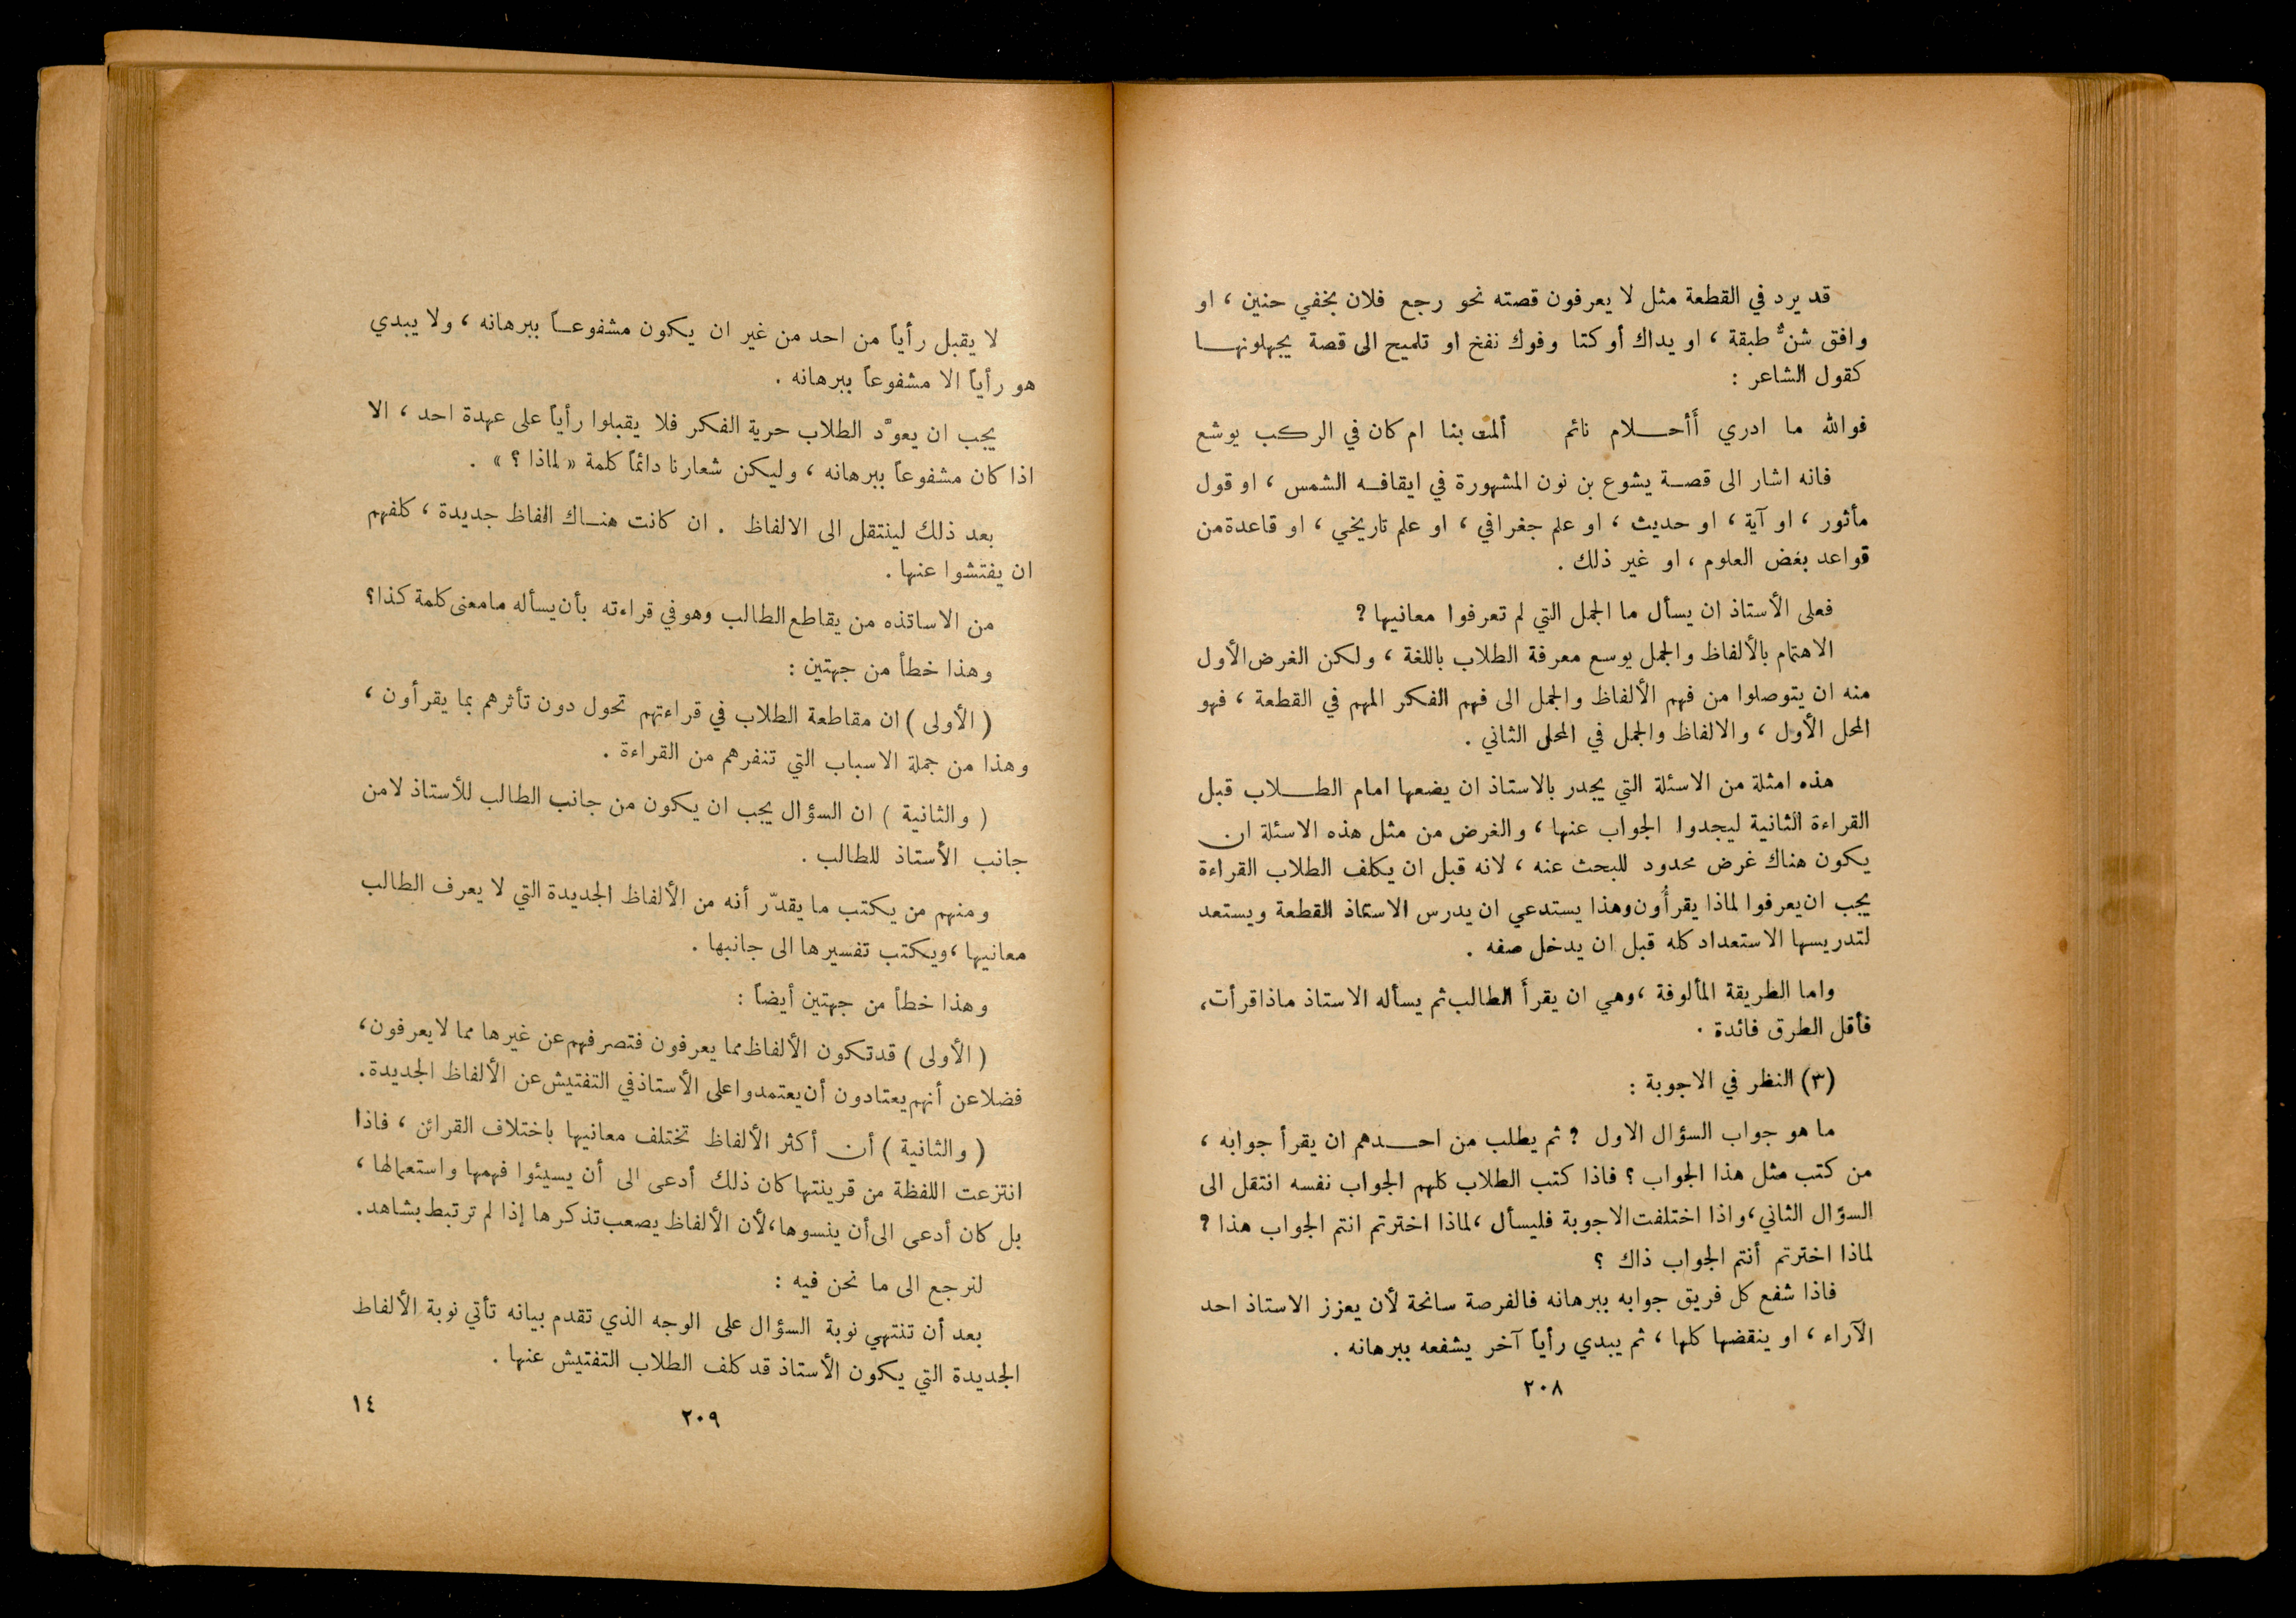 قد يرد في القطعة مثل لا يعرفون قصته نحو رجع فلان بخفي حنين ، او
وافق شنٌّ طبقة ، او يداك أوكتا وفوك نفخ او تلميح الى قصة يجهلونهـا
كقول الشاعر :
فوالله ما ادري أأحـلام نائم ألمت بنا ام كان في الركب يوشع
فانه اشار الى قصـة يشوع بن نون المشهورة في ايقافـه الشمس ، او قول
مأثور ، او آية ، او حديث ، او علم جغرافي ، او علم تاريخي ، او قاعدة من
قواعد بعض العلوم ، او غير ذلك .
فعلى الأستاذ ان يسأل ما الجمل التي لم تعرفوا معانيها ؟
الاهتمام بالألفاظ والجمل يوسع معرفة الطلاب باللغة ، ولكن الغرض الأول
منه ان يتوصلوا من فهم الألفاظ والجمل الى فهم الفكر المهم في القطعة ، فهو
المحل الأول ، والالفاظ والجمل في المحل الثاني .
هذه امثلة من الاسئلة التي يجدر بالاستاذ ان يضعها امام الطـلاب قبل
القراءة الثانية ليجدوا الجواب عنها ، والغرض من مثل هذه الاسئلة ان
يكون هناك غرض محدود للبحث عنه ، لانه قبل ان يكلف الطلاب القراءة
يجب ان يعرفوا لماذا يقرأُون وهذا يستدعي ان يدرس الاستاذ القطعة ويستعد
لتدريسها الاستعداد كله قبل ان يدخل صفه .
واما الطريقة المألوفة ، وهي ان يقرأَ الطالب ثم يسأله الاستاذ ماذا قرأت ،
فأقل الطرق فائدة .
(٣) النظر في الاجوبة :
ما هو جواب السؤال الاول ؟ ثم يطلب من احـدهم ان يقرأ جوابه ،
من كتب مثل هذا الجواب ؟ فاذا كتب الطلاب كلهم الجواب نفسه انتقل الى
السؤال الثاني ، واذا اختلفت الاجوبة فليسأل ، لماذا اخترتم انتم الجواب هذا ؟
لماذا اخترتم أنتم الجواب ذاك ؟
فاذا شفع كل فريق جوابه ببرهانه فالفرصة سانحة لأن يعزز الاستاذ احد
الآراء ، او ينقضها كلها ، ثم يبدي رأياً آخر يشفعه ببرهانه .
٢٠٨
لا يقبل رأياً من احد من غير ان يكون مشفوعـاً ببرهانه ، ولا يبدي
هو رأياً الا مشفوعاً ببرهانه .
يجب ان يعوَّد الطلاب حرية الفكر فلا يقبلوا رأياً على عهدة احد ، الا
اذا كان مشفوعاً ببرهانه ، وليكن شعارنا دائماً كلمة « لماذا ؟ » .
بعد ذلك لينتقل الى الالفاظ . ان كانت هنـاك الفاظ جديدة ، كلفهم
ان يفتشوا عنها .
من الاساتذه من يقاطع الطالب وهو في قراءته بأن يسأله ما معنى كلمة كذا ؟
وهذا خطأ من جهتين :
( الأولى ) ان مقاطعة الطلاب في قراءتهم تحول دون تأثرهم بما يقرأون ،
وهذا من جملة الاسباب التي تنفرهم من القراءة .
( والثانية ) ان السؤال يجب ان يكون من جانب الطالب للأستاذ لا من
جانب الأستاذ للطالب .
ومنهم من يكتب ما يقدّر أنه من الألفاظ الجديدة التي لا يعرف الطالب
معانيها ، ويكتب تفسيرها الى جانبها .
وهذا خطأ من جهتين أيضاً :
( الأولى ) قد تكون الألفاظ مما يعرفون فتصرفهم عن غيرها مما لا يعرفون ،
فضلا عن أنهم يعتادون أن يعتمدوا على الأستاذ في التفتيش عن الألفاظ الجديدة .
( والثانية ) أن أكثر الألفاظ تختلف معانيها باختلاف القرائن ، فاذا
انتزعت اللفظة من قرينتها كان ذلك أدعى الى أن يسيئوا فهمها واستعمالها ،
بل كان أدعى الى أن ينسوها ، لأن الألفاظ يصعب تذكرها إذا لم ترتبط بشاهد .
لنرجع الى ما نحن فيه :
بعد أن تنتهي نوبة السؤال على الوجه الذي تقدم بيانه تأتي نوبة الألفاظ
الجديدة التي يكون الأستاذ قد كلف الطلاب التفتيش عنها .
٢٠٩
١٤